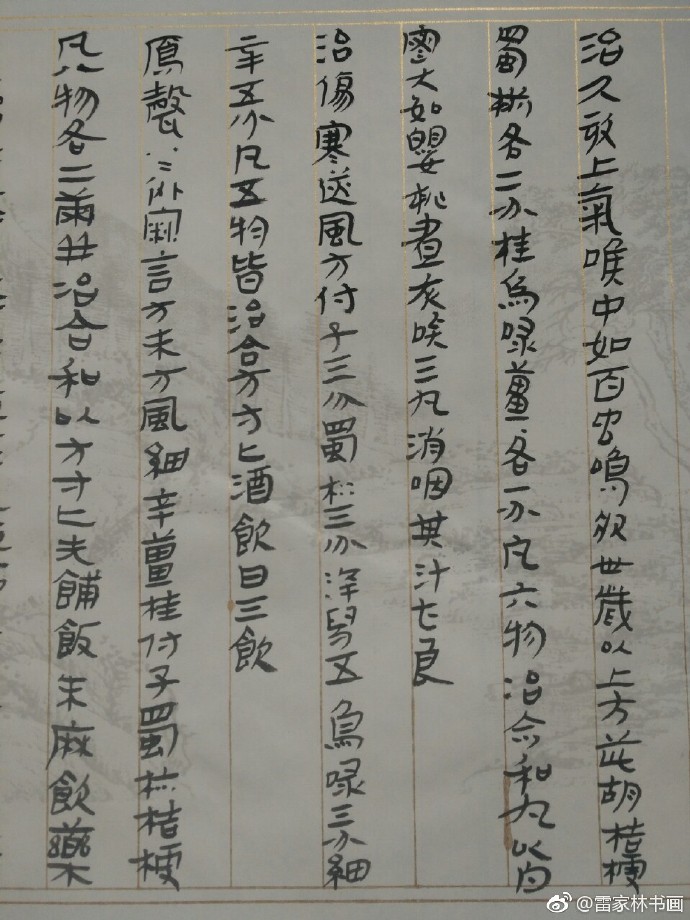 治久欬上氣喉中如百虫鳴狀卅歲以上方茈胡桔梗
蜀椒各二分桂烏喙薑各一分凡六物冶合和丸以白
密大如嬰桃晝夜唅三丸消咽其汁甚良
治傷寒遂風方付子三分蜀椒三分澤舄五烏喙三分細
辛五分凡五物皆冶合方寸匕酒飲日三飲
鴈聲言方朮方風細辛薑桂付子蜀椒桔梗
凡八物各二兩并冶合和以方寸匕先餔飯米麻飲藥
@雷家林书画